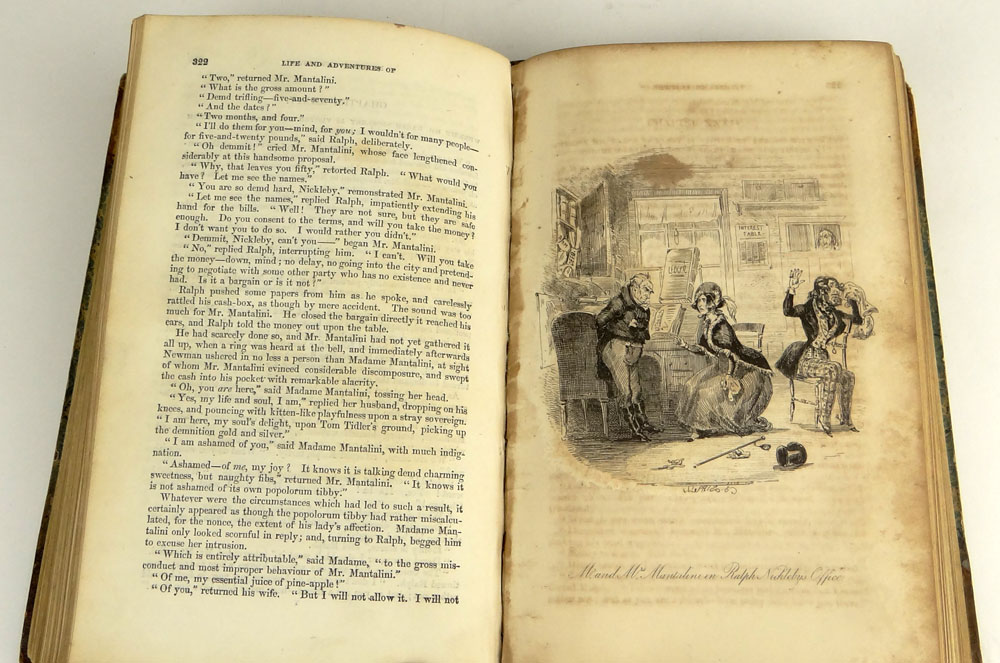 322
LIFE AND ADVENTURES OF
“Two,” returned Mr. Mantalini.
“What is the gross amount?”
“Demd trifling—five-and-seventy.”
“And the dates?”
“Two months, and four.”
“I'll do them for you—mind, for you; I wouldn't for many people—
for five-and-twenty pounds,” said Ralph, deliberately.
“Oh demmit!” cried Mr. Mantalini, whose face lengthened con-
siderably at this handsome proposal.
“Why, that leaves you fifty,” retorted Ralph. “What would you
have? Let me see the names.”
“You are so demd hard, Nickleby,” remonstrated Mr. Mantalini.
“Let me see the names,” replied Ralph, impatiently extending his
hand for the bills. “Well! They are not sure, but they are safe
enough. Do you consent to the terms, and will you take the money?
I don't want you to do so. I would rather you didn't.”
“Demmit, Nickleby, can't you——” began Mr. Mantalini.
“No,” replied Ralph, interrupting him. “I can't. Will you take
the money—down, mind; no delay, no going into the city and pretend-
ing to negotiate with some other party who has no existence and never
had. Is it a bargain or is it not?”
Ralph pushed some papers from him as he spoke, and carelessly
rattled his cash-box, as though by mere accident. The sound was too
much for Mr. Mantalini. He closed the bargain directly it reached his
ears, and Ralph told the money out upon the table.
He had scarcely done so, and Mr. Mantalini had not yet gathered it
all up, when a ring was heard at the bell, and immediately afterwards
Newman ushered in no less a person than Madame Mantalini, at sight
of whom Mr. Mantalini evinced considerable discomposure, and swept
the cash into his pocket with remarkable alacrity.
“Oh, you are here,” said Madame Mantalini, tossing her head.
“Yes, my life and soul, I am,” replied her husband, dropping on his
knees, and pouncing with kitten-like playfulness upon a stray sovereign.
“I am here, my soul's delight, upon Tom Tidler's ground, picking up
the demnition gold and silver.”
“I am ashamed of you,” said Madame Mantalini, with much indig-
nation.
“Ashamed—of me, my joy? It knows it is talking demd charming
sweetness, but naughty fibs,” returned Mr. Mantalini. “It knows it
is not ashamed of its own popolorum tibby.”
Whatever were the circumstances which had led to such a result, it
certainly appeared as though the popolorum tibby had rather miscalcu-
lated, for the nonce, the extent of his lady's affection. Madame Man-
talini only looked scornful in reply; and, turning to Ralph, begged him
to excuse her intrusion.
“Which is entirely attributable,” said Madame, “to the gross mis-
conduct and most improper behaviour of Mr. Mantalini.”
“Of me, my essential juice of pine-apple!”
“Of you,” returned his wife. “But I will not allow it. I will not
INTEREST
TABLE
LEDGER
Mr and Mrs Mantalini in Ralph Nickleby's Office